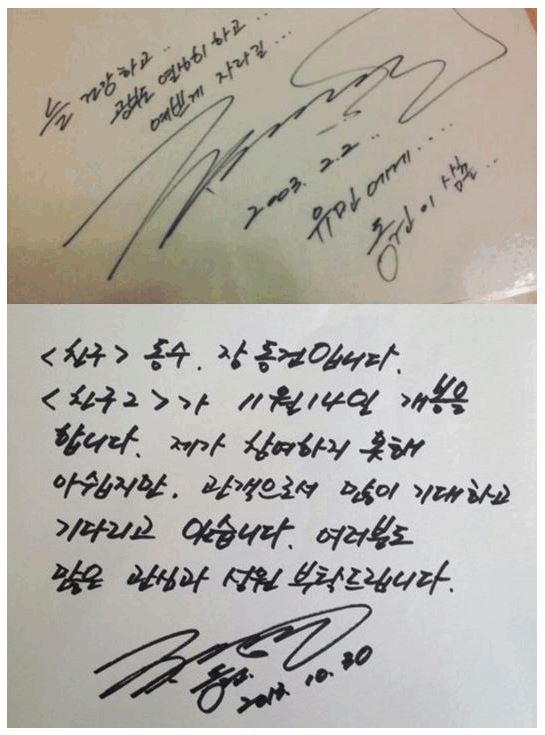 늘 건강하고..
공부도 열심히 하고...
예쁘게 자라길...
2003. 2. 2..
유민에게....
동건이 삼촌..
<친구> 동수. 장동건입니다.
<친구2>가 11월14일 개봉을
합니다. 제가 참여하지 못해
아쉽지만. 관객으로서 많이 기대하고
기다리고 있습니다. 여러분도
많은 관심과 성원 부탁드립니다.
2013. 10. 30